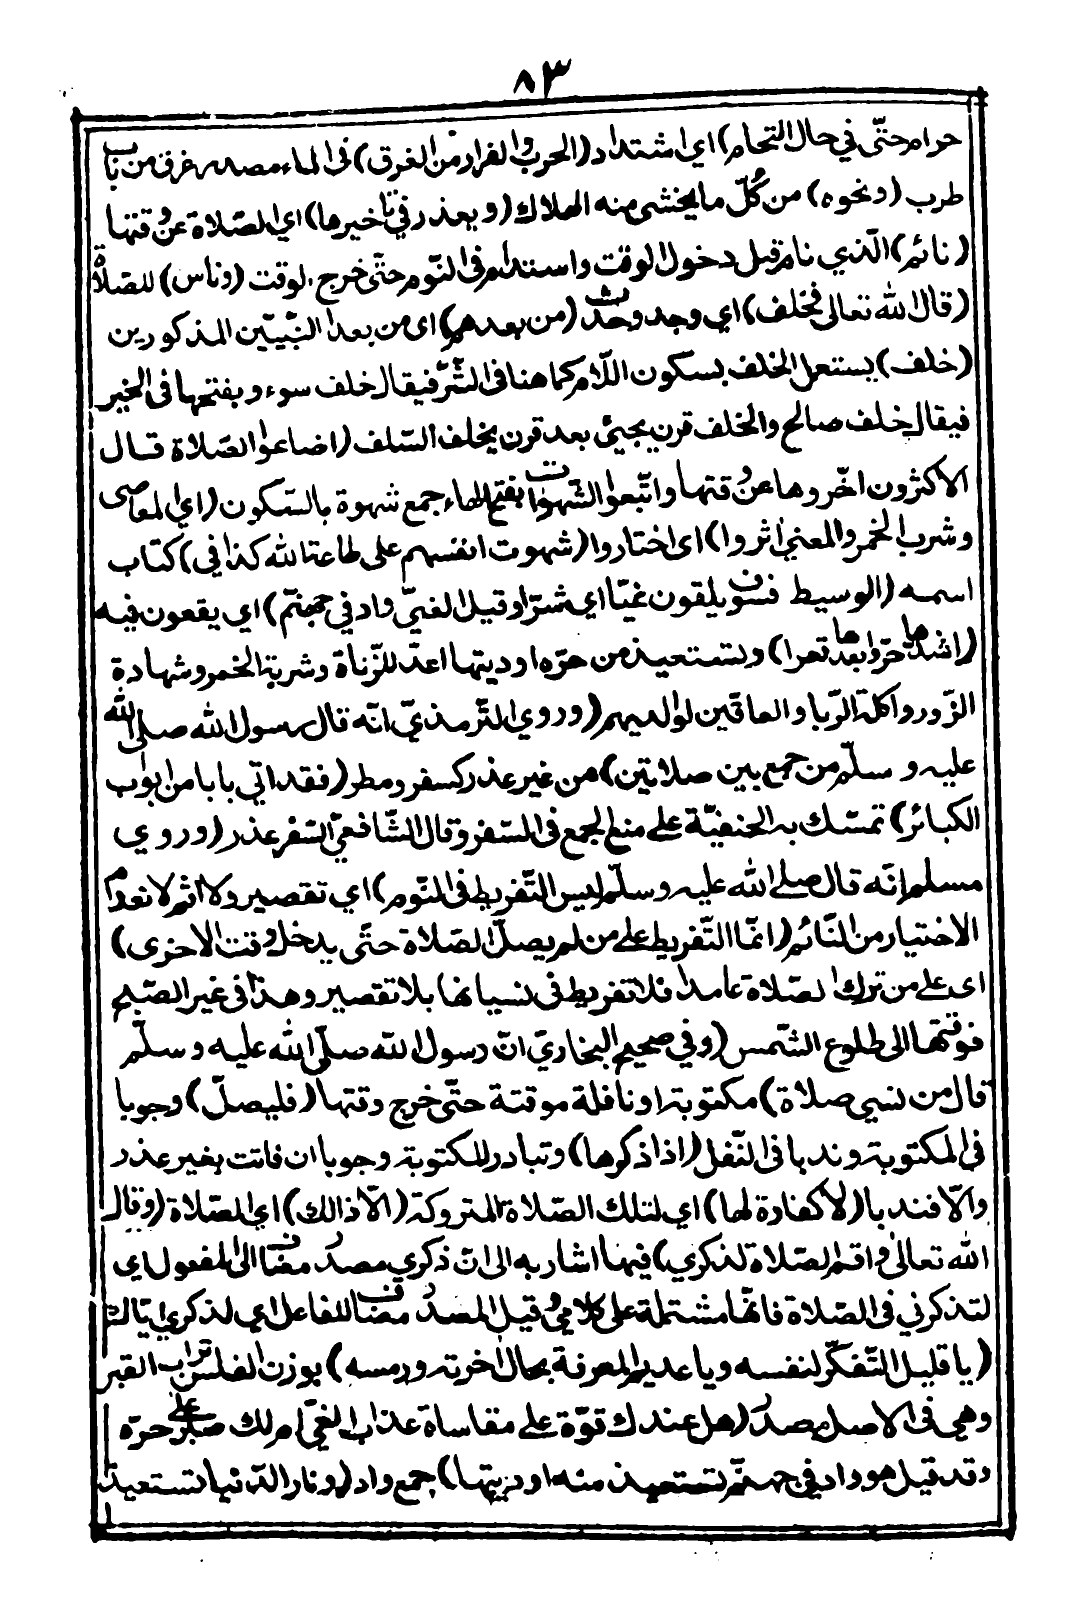 ٨٣
حرام حتّى في حال التحام) اي اشتداد (الحرب والفرار من الغرق) فى الماء مصدر غرق من باب
طرب (ونحوه) من كُلّ ما يخشى منه الهلاك (ويعذر في تاخيرها) اي الصّلاة عن وقتها
(نائم) الّذي نام قبل دخول الوقت واستدام فى النّوم حتّى خرج الوقت (وناس) للصّلاة
(قال الله تعالى فخلف) اي وجد وحدث (من بعدهم) اى من بعد النّبيّين المذكورين
(خلف) يستعمل الخلف بسكون اللّام كما هنا فى الشّرّ فيقال خلف سوء وبفتحها فى الخير
فيقال خلف صالح والخلف قرن يجيئ بعد قرن يخلف السّلف (اضاعوا الصّلاة قال
الاكثرون اخّروها عن وقتها واتّبعوا الشّهوات بفتح الهاء جمع شهوة بالسّكون (اي المعاصى
وشرب الخمر والمعنى اثروا) اى اختاروا (شهوت انفسهم على طاعة الله كذا في) كتاب
اسمه (الوسيط فسوف يلقون غيّا اي شرّا وقيل الغيّ واد في جهنّم) اي يقعون فيه
(اشدها حرّا وابعدها قعرا) وتستعيذ من حرّه اوديتها اعدّ للزّناة وشربة الخمر وشهادة
الزّور واكلة الرّبا والعاقّين لوالديهم (وروي التّرمذيّ انّه قال رسول الله صلى الله
عليه و سلّم من جمع بين صلاتين) من غير عذر كسفر ومطر (فقد اتي بابا من ابواب
الكبائر) تمسّك به الحنفيّة على منع الجمع فى السّفر وقال الشّافعيّ السّفر عذر (وروي
مسلم انّه قال صلى الله عليه وسلّم ليس التّفريط فى النّوم) اي تقصير ولا اثم لانعدام
الاختيار من النّائم (انّما التّفريط على من لم يصلّ الصّلاة حتّى يدخل وقت الاخرى)
اى على من ترك الصّلاة عامدا فلا تفريط فى نسيانها بلا تقصير وهذا فى غير الصّبح
فوقتها الى طلوع الشّمس (وفي صحيح البخاريّ انّ رسول الله صلّى الله عليه و سلّم
قال من نسي صلاة) مكتوبة او نافلة موقتة حتّى خرج وقتها (فليصلّ) وجوبا
فى المكتوبة وندبا فى النّفل (اذا ذكرها) وتبادر للمكتوبة وجوبا ان فاتت بغير عذر
والّا فندبا (لا كفارة لها) اي لتلك الصّلاة المتروكة (الّا ذالك) اي الصّلاة (وقال
الله تعالى واقم الصّلاة لذكري) فيها اشار به الى انّ ذكري مصدر مضاف الى المفعول اي
لتذكرني فى الصّلاة فانّها مشتملة على كلامي وقيل المصدر مضاف للفاعل اي لذكري ايّاك
(يا قليل التّفكّر لنفسه ويا عديم المعرفة بحال اخرته ورمسه) بوزن الفلس تراب القبر
وهي فى الاصل مصدر (هل عندك قوّة على مقاساة عذاب الغيّ ام لك صبر على حرّه
وقد قيل هو واد في جهنّم تستعيذ منه اوديتها) جمع واد (ونار الدّنيا تستعيذ